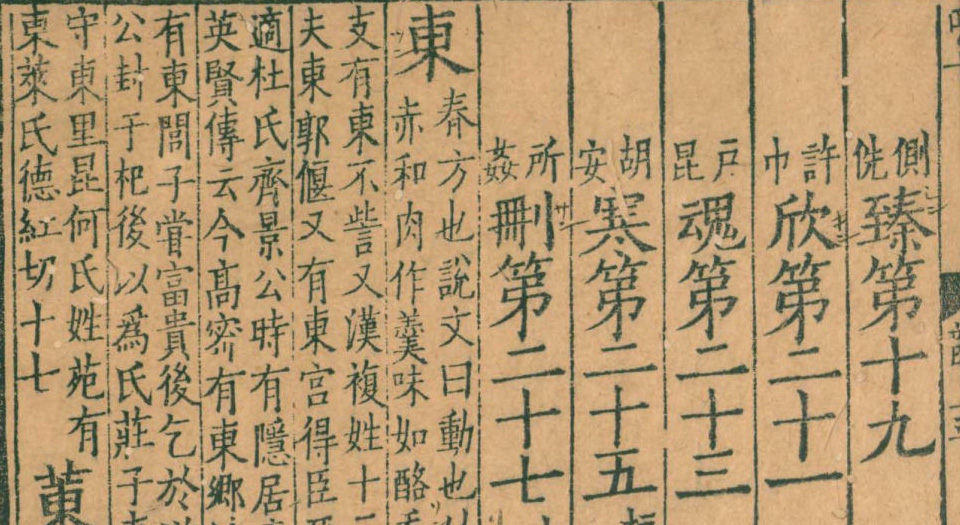 側詵臻第十九
許巾欣第二十一
戸昆魂第二十三
胡安寒第二十五
所姦刪第二十七
東春方也說文曰動也
赤和肉作羮味如酪
支有東不訾又漢複姓十
夫東郭偃又有東宮得臣
適杜氏齊景公時有隱居
英賢傳云今髙宻有東鄉
有東閭子甞富貴後乞於
公封于杞後以爲氏莊子
守東里昆何氏姓苑有
東萊氏德紅切十七
菄